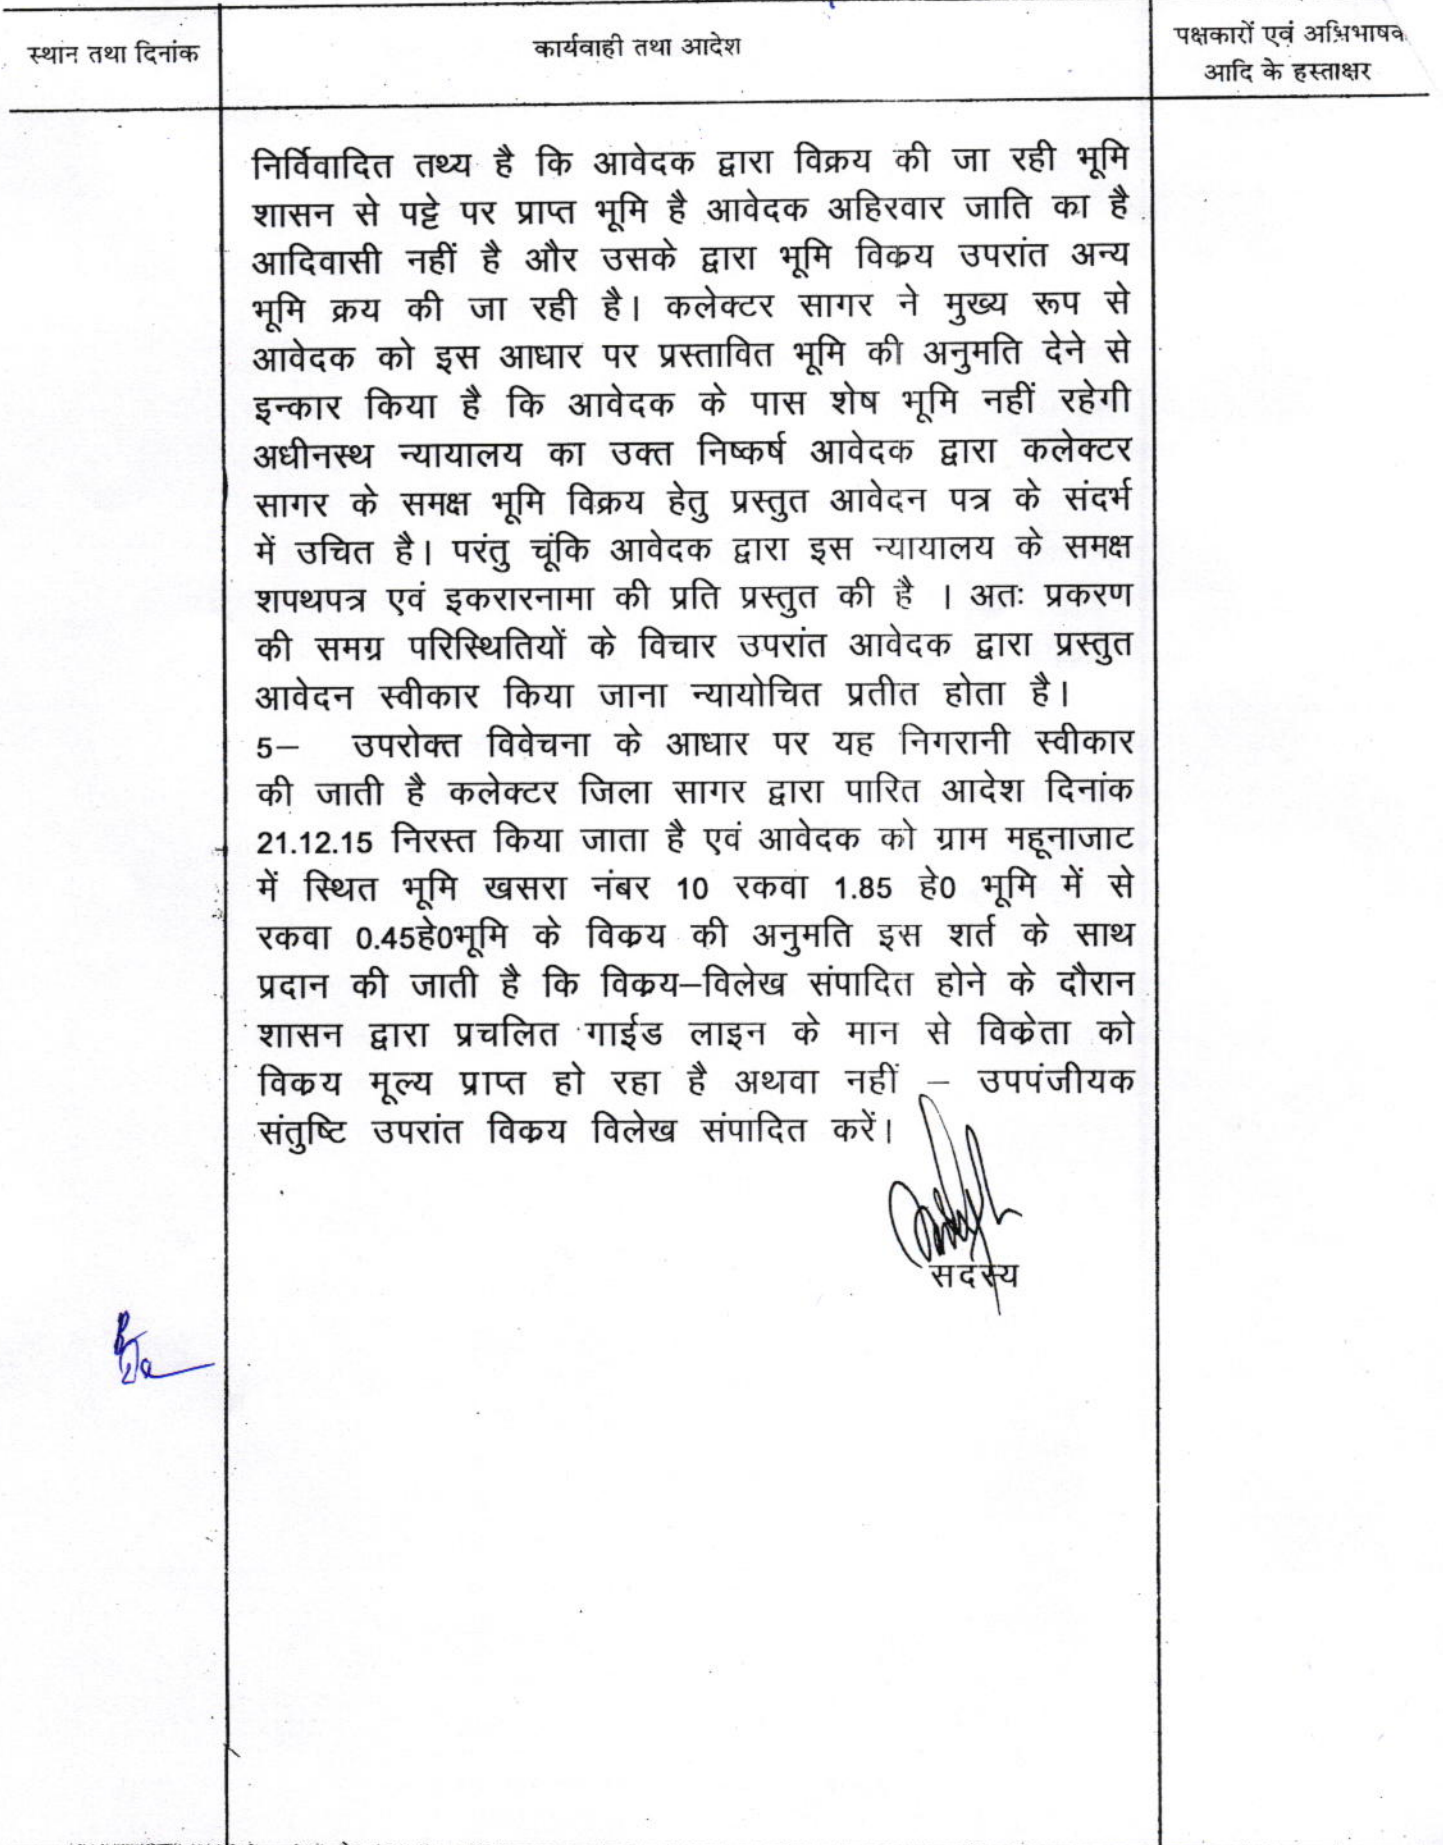 स्थान तथा दिनांक
कार्यवाही तथा आदेश
पक्षकारों एवं अभिभाषक
आदि के हस्ताक्षर
निर्विवादित तथ्य है कि आवेदक द्वारा विक्रय की जा रही भूमि
शासन से पट्टे पर प्राप्त भूमि है आवेदक अहिरवार जाति का है
आदिवासी नहीं है और उसके द्वारा भूमि विक्रय उपरांत अन्य
भूमि क्रय की जा रही है। कलेक्टर सागर ने मुख्य रूप से
आवेदक को इस आधार पर प्रस्तावित भूमि की अनुमति देने से
इन्कार किया है कि आवेदक के पास शेष भूमि नहीं रहेगी
अधीनस्थ न्यायालय का उक्त निष्कर्ष आवेदक द्वारा कलेक्टर
सागर के समक्ष भूमि विक्रय हेतु प्रस्तुत आवेदन पत्र के संदर्भ
में उचित है। परंतु चूंकि आवेदक द्वारा इस न्यायालय के समक्ष
शपथपत्र एवं इकरारनामा की प्रति प्रस्तुत की है । अतः प्रकरण
की समग्र परिस्थितियों के विचार उपरांत आवेदक द्वारा प्रस्तुत
आवेदन स्वीकार किया जाना न्यायोचित प्रतीत होता है।
5– उपरोक्त विवेचना के आधार पर यह निगरानी स्वीकार
की जाती है कलेक्टर जिला सागर द्वारा पारित आदेश दिनांक
21.12.15 निरस्त किया जाता है एवं आवेदक को ग्राम महूनाजाट
में स्थित भूमि खसरा नंबर 10 रकवा 1.85 हे0 भूमि में से
रकवा 0.45हे0भूमि के विक्रय की अनुमति इस शर्त के साथ
प्रदान की जाती है कि विक्रय–विलेख संपादित होने के दौरान
शासन द्वारा प्रचलित गाईड लाइन के मान से विक्रेता को
विक्रय मूल्य प्राप्त हो रहा है अथवा नहीं – उपपंजीयक
संतुष्टि उपरांत विक्रय विलेख संपादित करें।
सदस्य